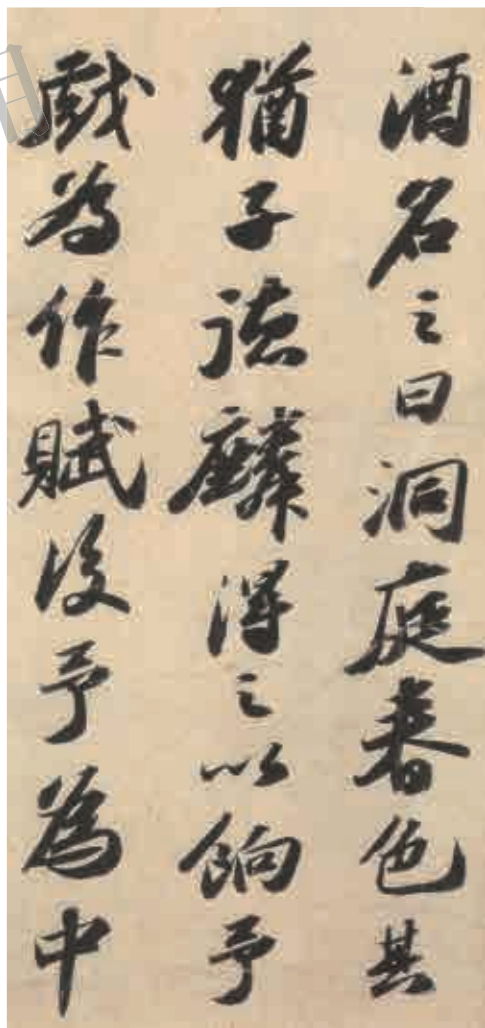 酒名之曰洞庭春色其
猶子德麟得之以餉予
戲為作賦後予為中